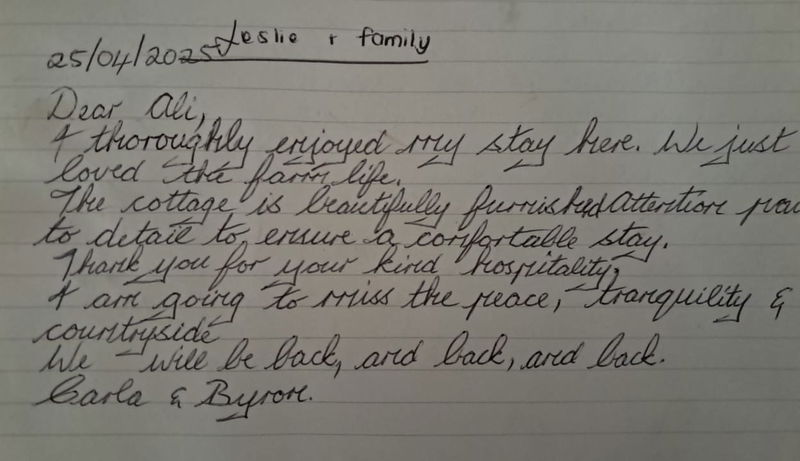 Leslie & family
25/04/2025
Dear Ali,
I thoroughly enjoyed my stay here. We just
loved the farm life.
The cottage is beautifully furnished Attention
to detail to ensure a comfortable stay.
Thank you for your kind hospitality,
I am going to miss the peace, tranquility &
countryside
We will be back, and back, and back.
Carla & Byron.